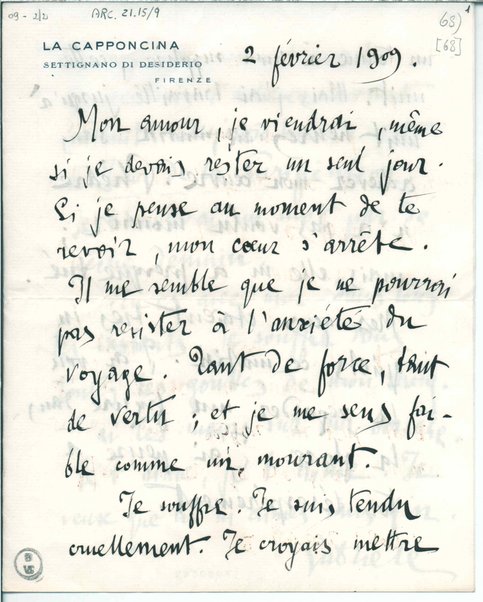 09 - 2/2
ARC. 21.15/9
1
68)
[68]
LA CAPPONCINA
SETTIGNANO DI DESIDERIO
FIRENZE
2 février 1909.
Mon amour, je viendrai, même
si je devais rester un seul jour.
Si je pense au moment de te
revoir, mon cœur s'arrête.
Il me semble que je ne pourrai
pas resister à l'anxiété du
voyage. Tant de force, tant
de vertu : et je me sens fai-
ble comme un mourant.
Je souffre. Je suis tendu
cruellement. Je croyais mettre